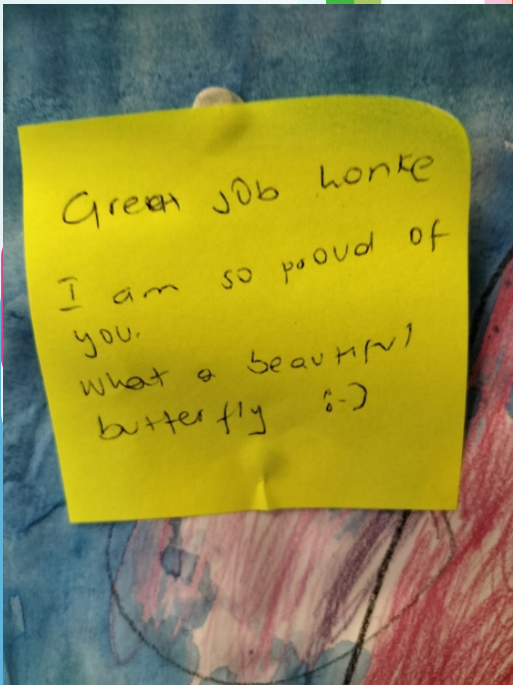 Great Job Lonke
I am so proud of
you.
What a beautiful
butterfly :-)